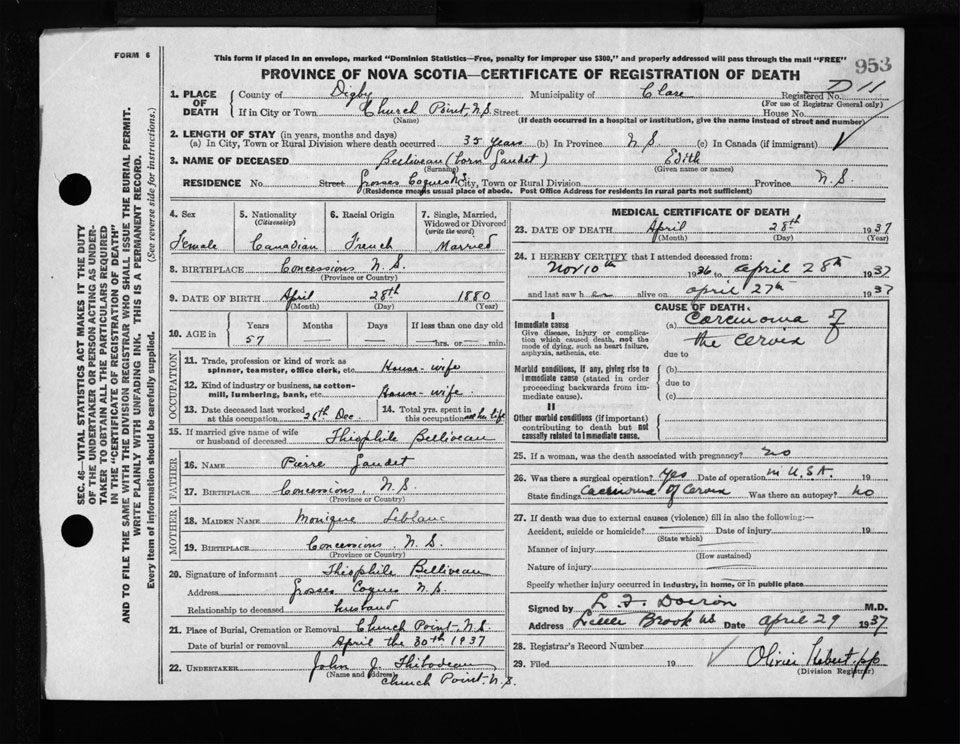 FORM 6
This form if placed in an envelope, marked "Dominion Statistics—Free, penalty for improper use $300," and properly addressed will pass through the mail "FREE"
953
PROVINCE OF NOVA SCOTIA—CERTIFICATE OF REGISTRATION OF DEATH
1. PLACE OF DEATH
County of Digby Municipality of Clare Registered No. D 11
(For use of Registrar General only)
If in City or Town Church Point, N.S. Street House No.
(Name) (If death occurred in a hospital or institution, give the name instead of street and number)
2. LENGTH OF STAY (in years, months and days)
(a) In City, Town or Rural Division where death occurred 35 years (b) In Province N S (c) In Canada (if immigrant)
3. NAME OF DECEASED Belliveau (born Gaudet) Edith
(Surname) (Given name or names)
RESIDENCE No. Street Grosses Coques N.S. City, Town or Rural Division Province N. S.
(Residence means usual place of abode. Post Office Address for residents in rural parts not sufficient)
4. Sex
Female
5. Nationality
(Citizenship)
Canadian
6. Racial Origin
French
7. Single, Married, Widowed or Divorced
(write the word)
Married
8. BIRTHPLACE Concessions N. S.
(Province or Country)
9. DATE OF BIRTH April 28th 1880
(Month) (Day) (Year)
10. AGE in
Years Months Days If less than one day old
57 — — hrs. or min.
OCCUPATION
11. Trade, profession or kind of work as
spinner, teamster, office clerk, etc. House-wife
12. Kind of industry or business, as cotton-
mill, lumbering, bank, etc. House-wife
13. Date deceased last worked
at this occupation 26th Dec.
14. Total yrs. spent in
this occupation all her life
15. If married give name of wife
or husband of deceased Thiophile Belliveau
FATHER
16. NAME Pierre Gaudet
17. BIRTHPLACE Concessions, N. S.
MOTHER
18. MAIDEN NAME Monique Leblanc
19. BIRTHPLACE Concessions N. S.
(Province or Country)
20. Signature of informant Thiophile Belliveau
Address Grosses Coques N. S.
Relationship to deceased husband
21. Place of Burial, Cremation or Removal Church Point, N.S.
Date of burial or removal April the 30th 1937
22. UNDERTAKER John J. Thibodeau
(Name and address)
Church Point, N. S.
MEDICAL CERTIFICATE OF DEATH
23. DATE OF DEATH April 28th 1937
(Month) (Day) (Year)
24. I HEREBY CERTIFY that I attended deceased from:
Nov 10th 1936 to April 28th 1937
and last saw her alive on April 27th 1937
CAUSE OF DEATH
I
Immediate cause
Give disease, injury or complica-
tion which caused death, not the
mode of dying, such as heart failure,
asphyxia, asthenia, etc.
(a) Carcinoma of
the Cervix
due to
Morbid conditions, if any, giving rise to
immediate cause (stated in order
proceeding backwards from im-
mediate cause).
(b)
due to
(c)
II
Other morbid conditions (if important)
contributing to death but not
causally related to immediate cause.
25. If a woman, was the death associated with pregnancy? no
26. Was there a surgical operation? Yes Date of operation in U.S.A.
State findings Carcinoma of Cervix Was there an autopsy? no
27. If death was due to external causes (violence) fill in also the following:—
Accident, suicide or homicide? Date of injury 19
(State which)
Manner of injury
(How sustained)
Nature of injury
Specify whether injury occurred in industry, in home, or in public place
Signed by L. F. Doiron M.D.
Address Little Brook N.S. Date April 29 1937
28. Registrar's Record Number
29. Filed 19 Olivier Hebert. pp
(Division Registrar)
SEC. 46—VITAL STATISTICS ACT MAKES IT THE DUTY
OF THE UNDERTAKER OR PERSON ACTING AS UNDER-
TAKER TO OBTAIN ALL THE PARTICULARS REQUIRED
IN THE "CERTIFICATE OF REGISTRATION OF DEATH"
AND TO FILE THE SAME WITH THE DIVISION REGISTRAR WHO SHALL ISSUE THE BURIAL PERMIT.
WRITE PLAINLY WITH UNFADING INK. THIS IS A PERMANENT RECORD.
Every item of information should be carefully supplied. (See reverse side for instructions.)